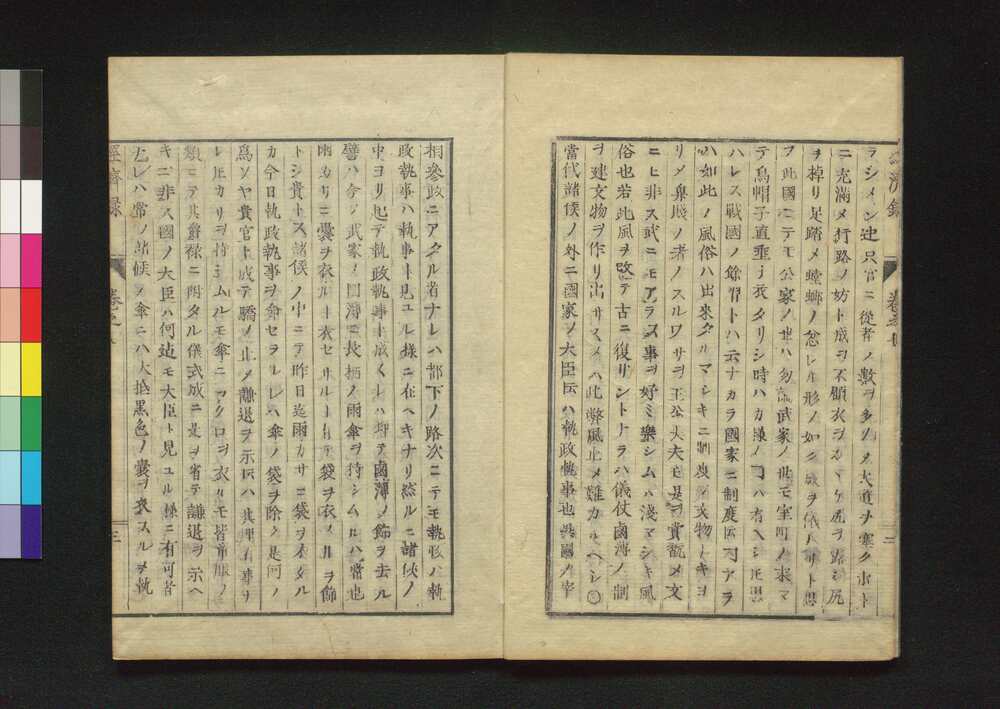 ラシメン迚只官ニ從者ノ數ヲ多クシテ大道ヲ塞クホト
ニ充滿メ行路ノ妨ト成ヲ不顧衣ヲカヽゲ尻ヲ露シ尻
ヲ掉リ足踏メ螳螂ノ忿レル形ノ如
ヲ此國ニテモ公家ノ世ハ勿論武家ノ世モ室町ノ末マ
テ烏帽子直垂ヲ衣タリシ時ハカ樣ノヿハ有ヘシ𪜈思
ハレス戰國ノ餘習トハ云ナカラ國家ニ制度云ヿアラ
ハ如此ノ風俗ハ出來タルマシキニ制度ノ文物トキヨ
リメ鼻賤ノ者ノスルワサヲ王公大夫モ是ヲ賞翫メ文
ニモ非ス武ニモアラス事ヲ好ミ樂シムハ淺マシキ風
俗也若此風ヲ改テ古ニ復サントナラハ儀仗鹵簿ノ制
ヲ建文物ヲ作リ出サスメハ此弊風止メ難カルヘシ○
當代諸侯ノ外ニ國家ノ大臣云ハ執政執事也異國ノ宰
相參政ニアタル者ナレハ都下ノ路次ニテモ執政ハ執
政執事ハ執事ト見ユル樣ニ在ヘキナリ然ルニ諸侯ノ
中ヨリ起テ執政執事ト成
譬ハ今ノ武家ノ鹵簿ニ長柄ノ雨傘ヲ持シムルハ常也
雨カサニ囊ヲ衣ルト衣セサルト有テ袋ヲ衣スルヲ飾
トシ貴トス諸侯ノ中ニテ昨日迄雨カサニ袋ヲ衣タル
カ今日執政執事ヲ命セラレレハ傘ノ袋ヲ除ク是何ノ
爲ソヤ貴官ト成テ驕ヲ止メ謙退ヲ示
類ニテ其爵祿ニ
キニ非ス國ノ大臣ハ何迄モ大臣ト見ユル樣ニ有可者
ナレハ常ノ諸候ノ傘ニハ大抵黑色ノ囊ヲ衣スルヲ執
經濟録
三